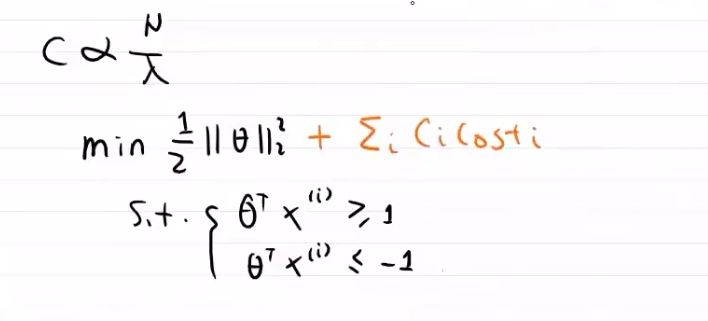 C ∝ N/λ
min 1/2 ||θ||₂² + Σᵢ Cᵢ Costᵢ
s.t. { θᵀ x⁽ⁱ⁾ ≥ 1
θᵀ x⁽ⁱ⁾ ≤ -1